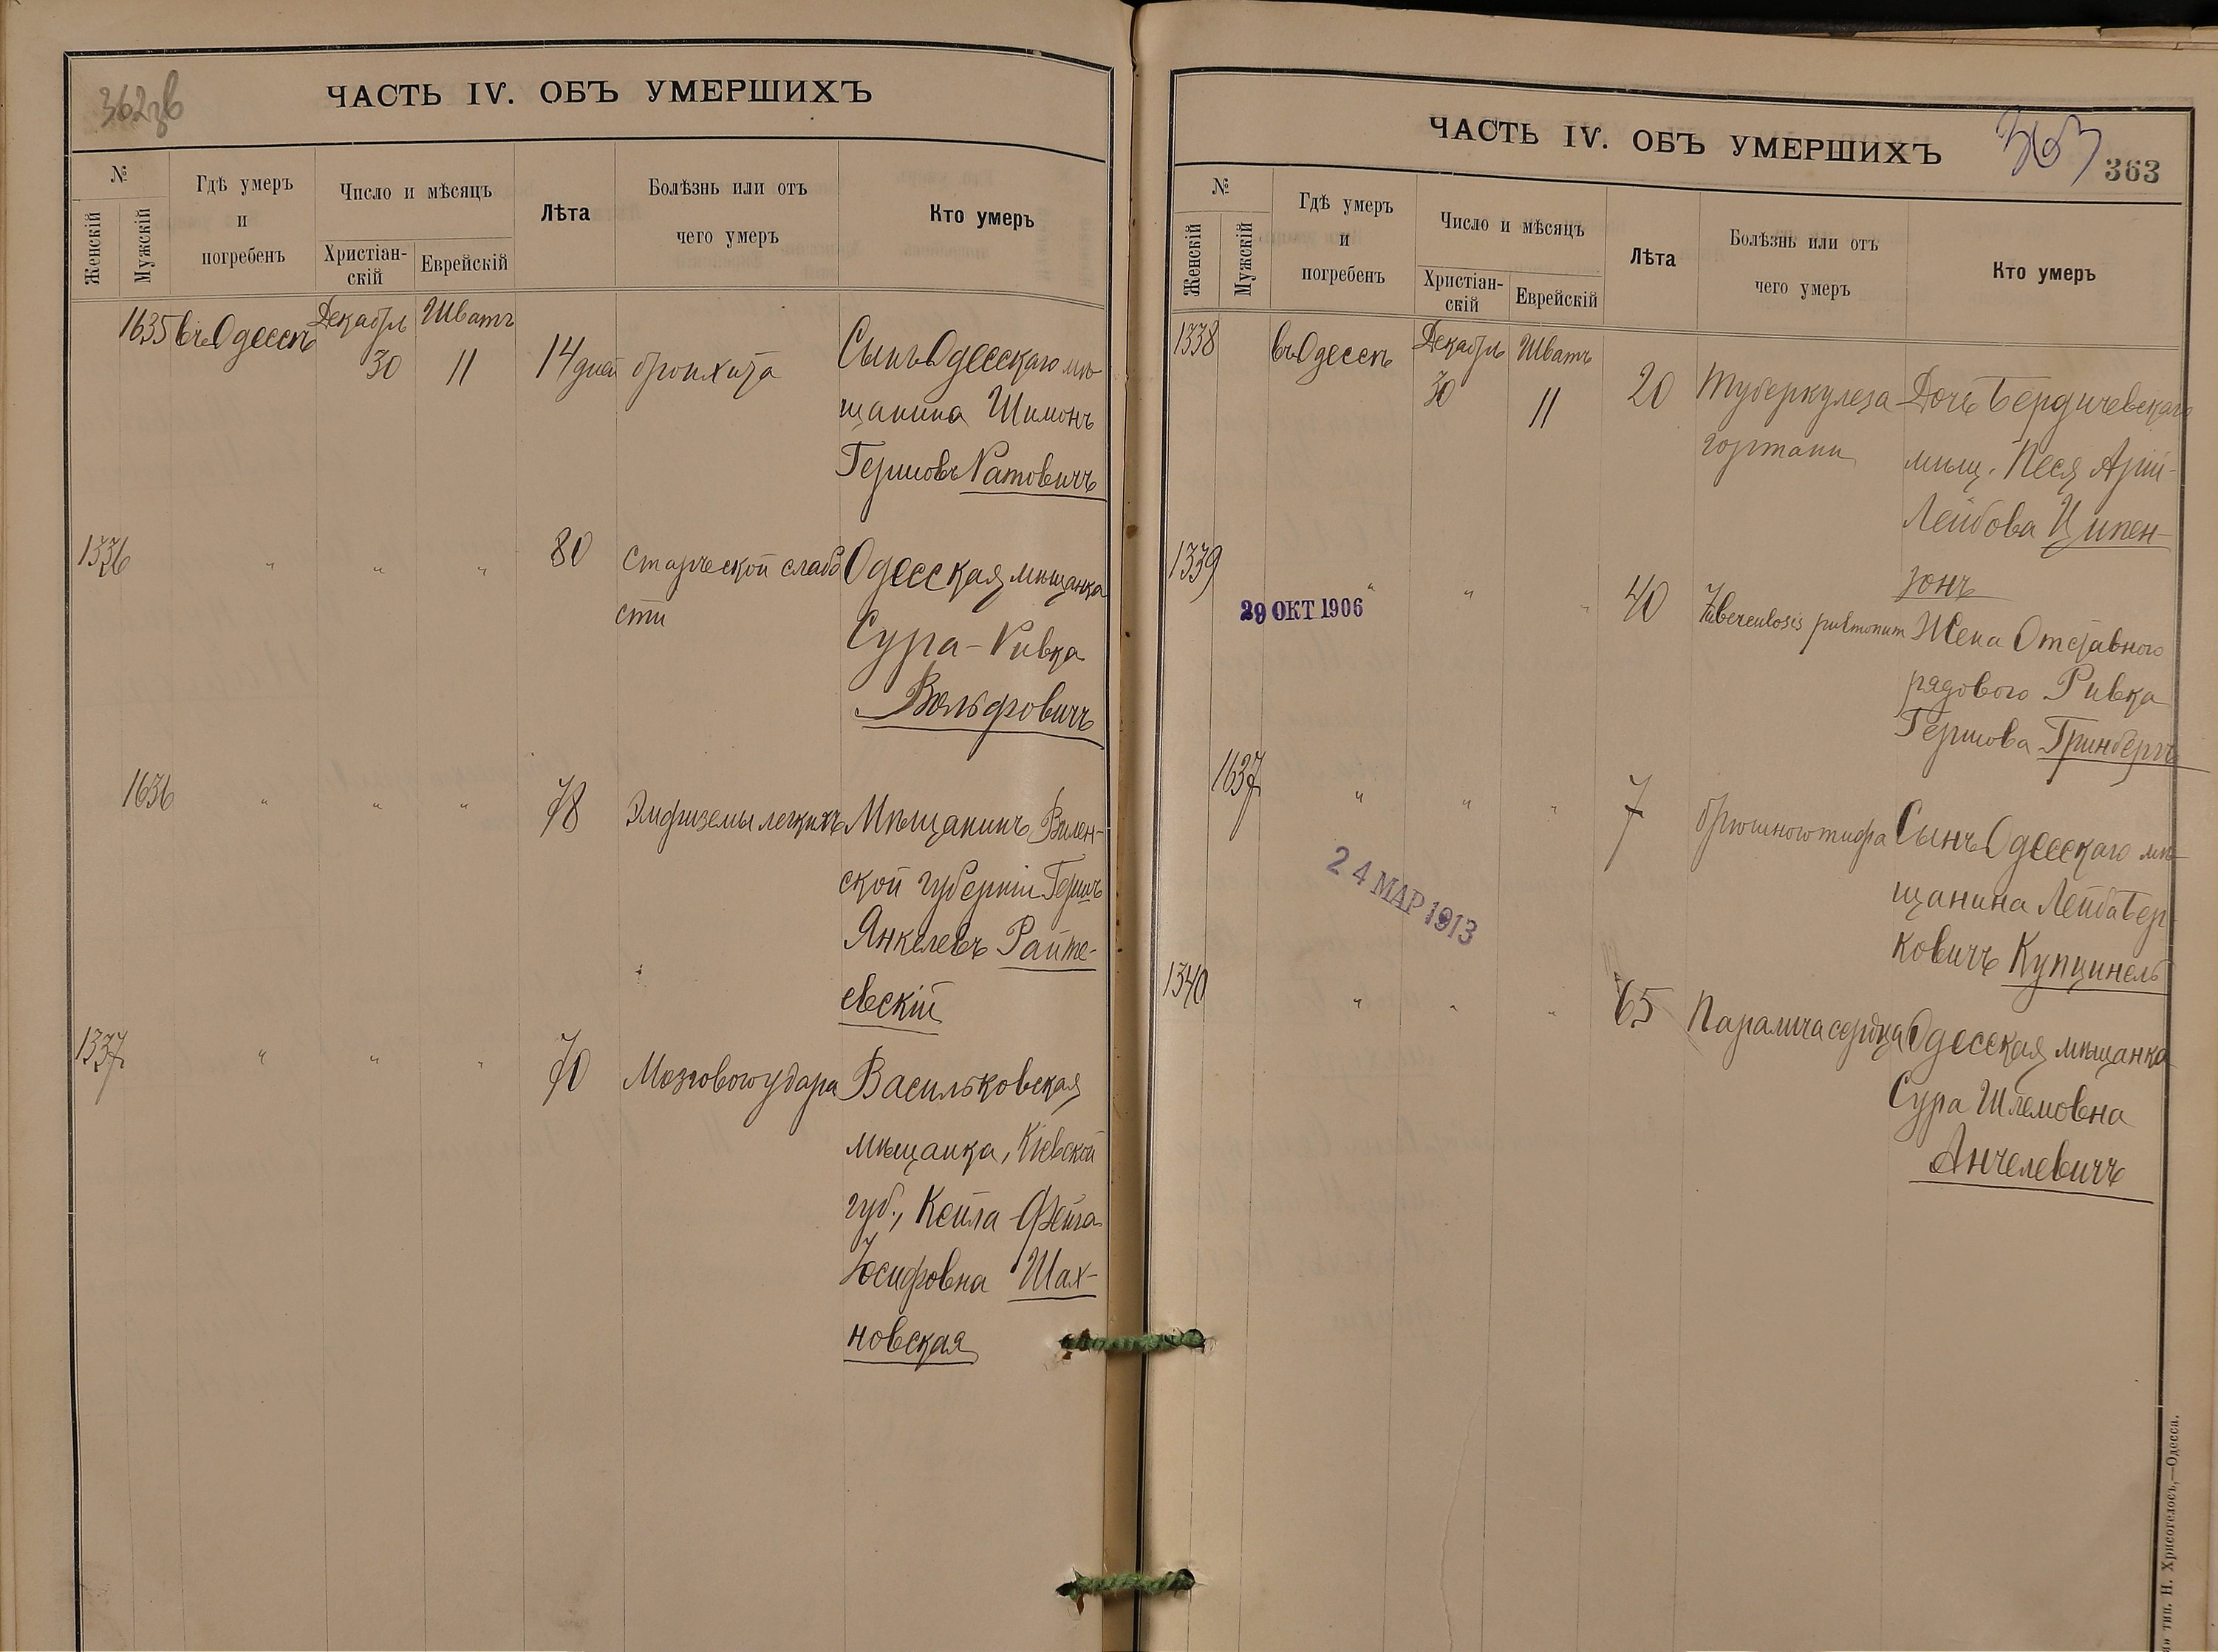 362зв
ЧАСТЬ IV. ОБЪ УМЕРШИХЪ
№
Женскій
Мужскій
Гдѣ умеръ
и
погребенъ
Число и мѣсяцъ
Христіан-
скій
Еврейскій
Лѣта
Болѣзнь или отъ
чего умеръ
Кто умеръ
1635 въ Одессѣ Декабрь Шватъ
30 11 14 дней бронхита Сынъ Одесскаго мѣ-
щанина Шимонъ
Гершовъ Ратовичъ
1336 " " " 80 Старческой слабо Одесская мѣщанка
сти
Сура-Ривка
Вольфовичъ
1636 " " " 78 Эмфиземы легкихъ Мѣщанинъ Вилен-
ской губерніи Гершъ
Янкелевъ Райте-
евскій
1337 " " " 70 Мозгового удара Васильковская
мѣщанка, Кіевской
губ., Кейла-Фейга
Іосифовна Шах-
новская
363
ЧАСТЬ IV. ОБЪ УМЕРШИХЪ
363
№
Женскій
Мужскій
Гдѣ умеръ
и
погребенъ
Число и мѣсяцъ
Христіан-
скій
Еврейскій
Лѣта
Болѣзнь или отъ
чего умеръ
Кто умеръ
1338 въ Одессѣ Декабрь Шватъ
30 11 20 Туберкулеза Дочь Бердичевскаго
гортани мѣщ. Песя Арій-
Лейбова Ципен-
зонъ
1339 " " " 40 Tuberculosis pulmonum Жена Отставного
29 ОКТ 1906
рядового Ривка
Гершова Гринбергъ
1637 " " " 7 брюшного тифа Сынъ Одесскаго мѣ-
щанина Лейба Бер-
24 МАР 1913
ковичъ Купцинель
1340 " " " 65 Паралича сердца Одесская мѣщанка
Сура Шлемовна
Анчелевичъ
тип. Н. Хрисогелосъ,—Одесса.